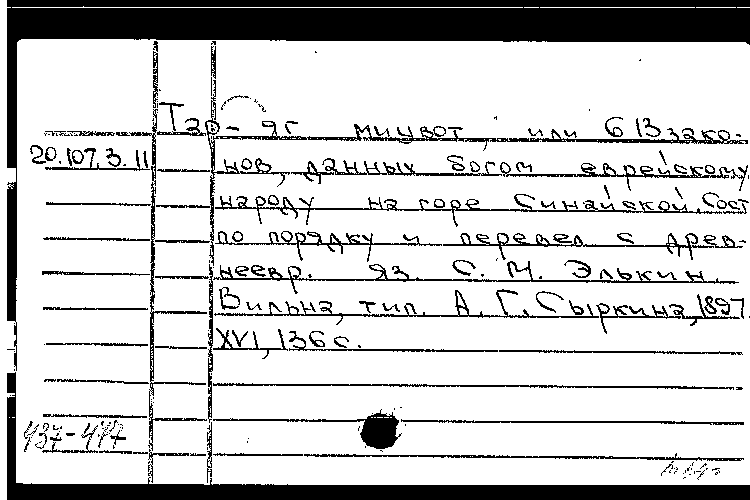 Тар- яг мицвот, или 613 зако-
20.107.3.11
нов, данных богом еврейскому
народу на горе Синайской. Сост
по порядку и перевел с древ-
неевр. яз. С. М. Элькин.
Вильна, тип. А. Г. Сыркина, 1897.
XVI, 136 с.
437-477